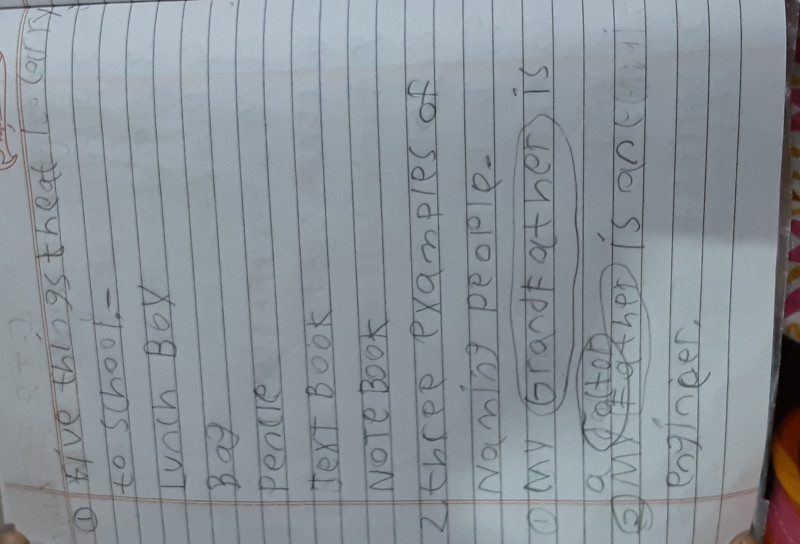 ① Five things theat I carry
to school:-
Lunch Box
Bag
Pencle
Text Book
NOTE BOOK
2 three examples of
Naming people.
① my Grandfather is
a
② My Father is an
enginjer.